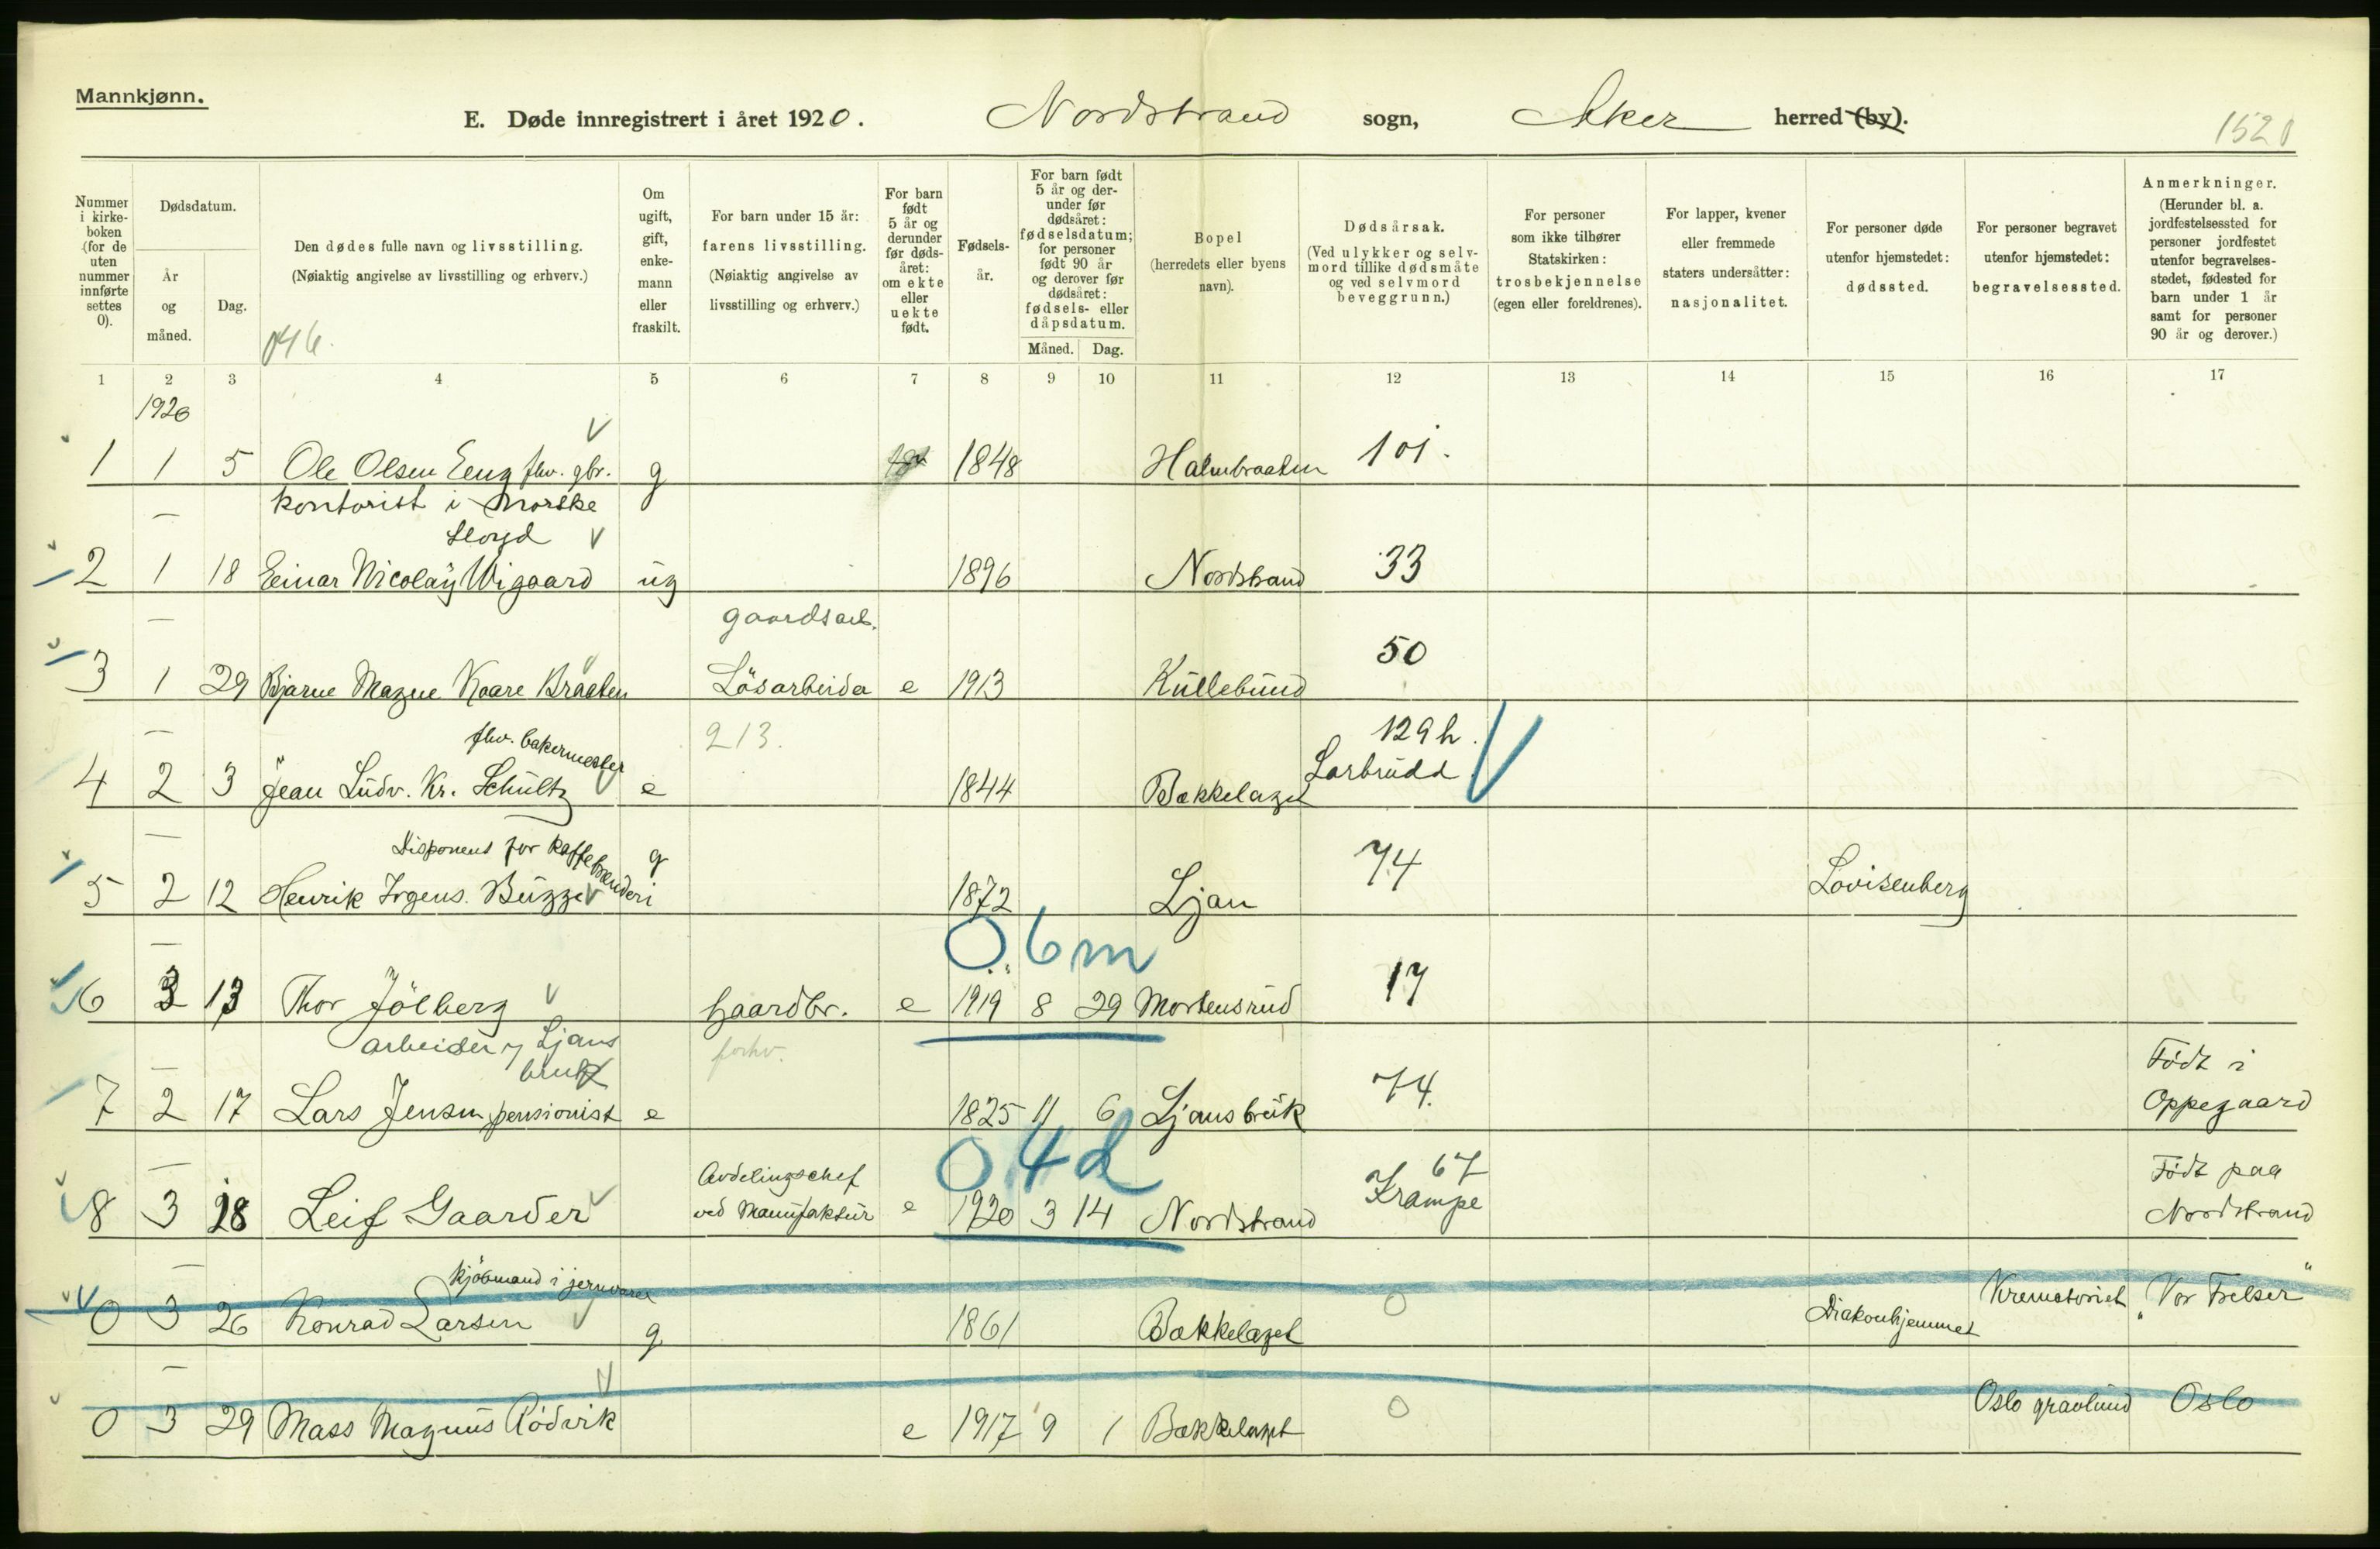 Mannkjønn.
E. Døde innregistrert i året 1920. Nordstrand sogn, Aker herred (by).
1520
Nummer i kirke-boken (for de uten nummer innførte settes 0).
Dødsdatum.
År og måned.
Dag.
Den dødes fulle navn og livsstilling.
(Nøiaktig angivelse av livsstilling og erhverv.)
Om ugift, gift, enke-mann eller fraskilt.
For barn under 15 år: farens livsstilling. (Nøiaktig angivelse av livsstilling og erhverv.)
For barn født 5 år og derunder før døds-året: om ekte eller uekte født.
Fødsels-år.
For barn født 5 år og der-under før dødsåret: fødselsdatum; for personer født 90 år og derover før dødsåret: fødsels- eller dåpsdatum.
Måned. Dag.
Bopel (herredets eller byens navn).
Dødsårsak. (Ved ulykker og selv-mord tillike dødsmåte og ved selvmord beveggrunn.)
For personer som ikke tilhører Statskirken: trosbekjennelse (egen eller foreldrenes).
For lapper, kvener eller fremmede staters undersåtter: nasjonalitet.
For personer døde utenfor hjemstedet: dødssted.
For personer begravet utenfor hjemstedet: begravelsessted.
Anmerkninger. (Herunder bl. a. jordfestelsessted for personer jordfestet utenfor begravelses-stedet, fødested for barn under 1 år samt for personer 90 år og derover.)
1 2 3 4 5 6 7 8 9 10 11 12 13 14 15 16 17
1920
1 1 5 Ole Olsen Eeng fhv. gbr. g 1848 Halmbraaten 101.
kontorist i Norske
Lloyd
2 1 18 Einar Nicolaÿ Wigaard ug 1896 Nordstrand 33
gaardsarb.
3 1 29 Bjarne Magne Kaare Braaten Lösarbeider e 1913 Kullebund 50
fhv. bakermester 213. 129h.
4 2 3 Jean Ludv. Kr. Schultz e 1844 Bækkelaget Sarbrudd
Disponent for kaffebrænderi g
5 2 12 Henrik Irgens Bugge 1872 Ljan 74 Lovisenberg
0 6m
6 3 13 Thor Jölberg gaardbr. e 1919 8 29 Mortensrud 17
arbeider v Ljans forhv.
bruk
7 2 17 Lars Jensen, pensionist e 1825 11 6 Ljansbruk 74. Født i Oppegaard
0 4d
8 3 18 Leif Gaarder Avdelingschef ved Manufaktur e 1920 3 14 Nordstrand 67 Krampe Født paa Nordstrand
kjöbmand i jernvarer
0 3 26 Konrad Larsen g 1861 Bækkelaget 0 Diakonhjemmet Krematoriet „Vor Frelser"
0 3 29 Mass Magnus Rödvik e 1917 9 1 Bækkelaget 0 Oslo gravlund Oslo